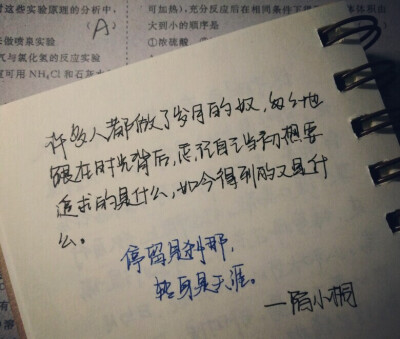 对这些实验原理的分析中,
(A)
做喷泉实验
气与氯化氢的反应实验
室可用NH₄Cl和石灰水
可加热),充分反应后在相同条件下
大到小的顺序是
①浓硫酸
许多人都做了岁月的奴,匆匆地
跟在时光背后,忘记自己当初想要
追求的是什么,如今得到的又是什
么。
停留是刹那,
转身是天涯。
—陌小桐